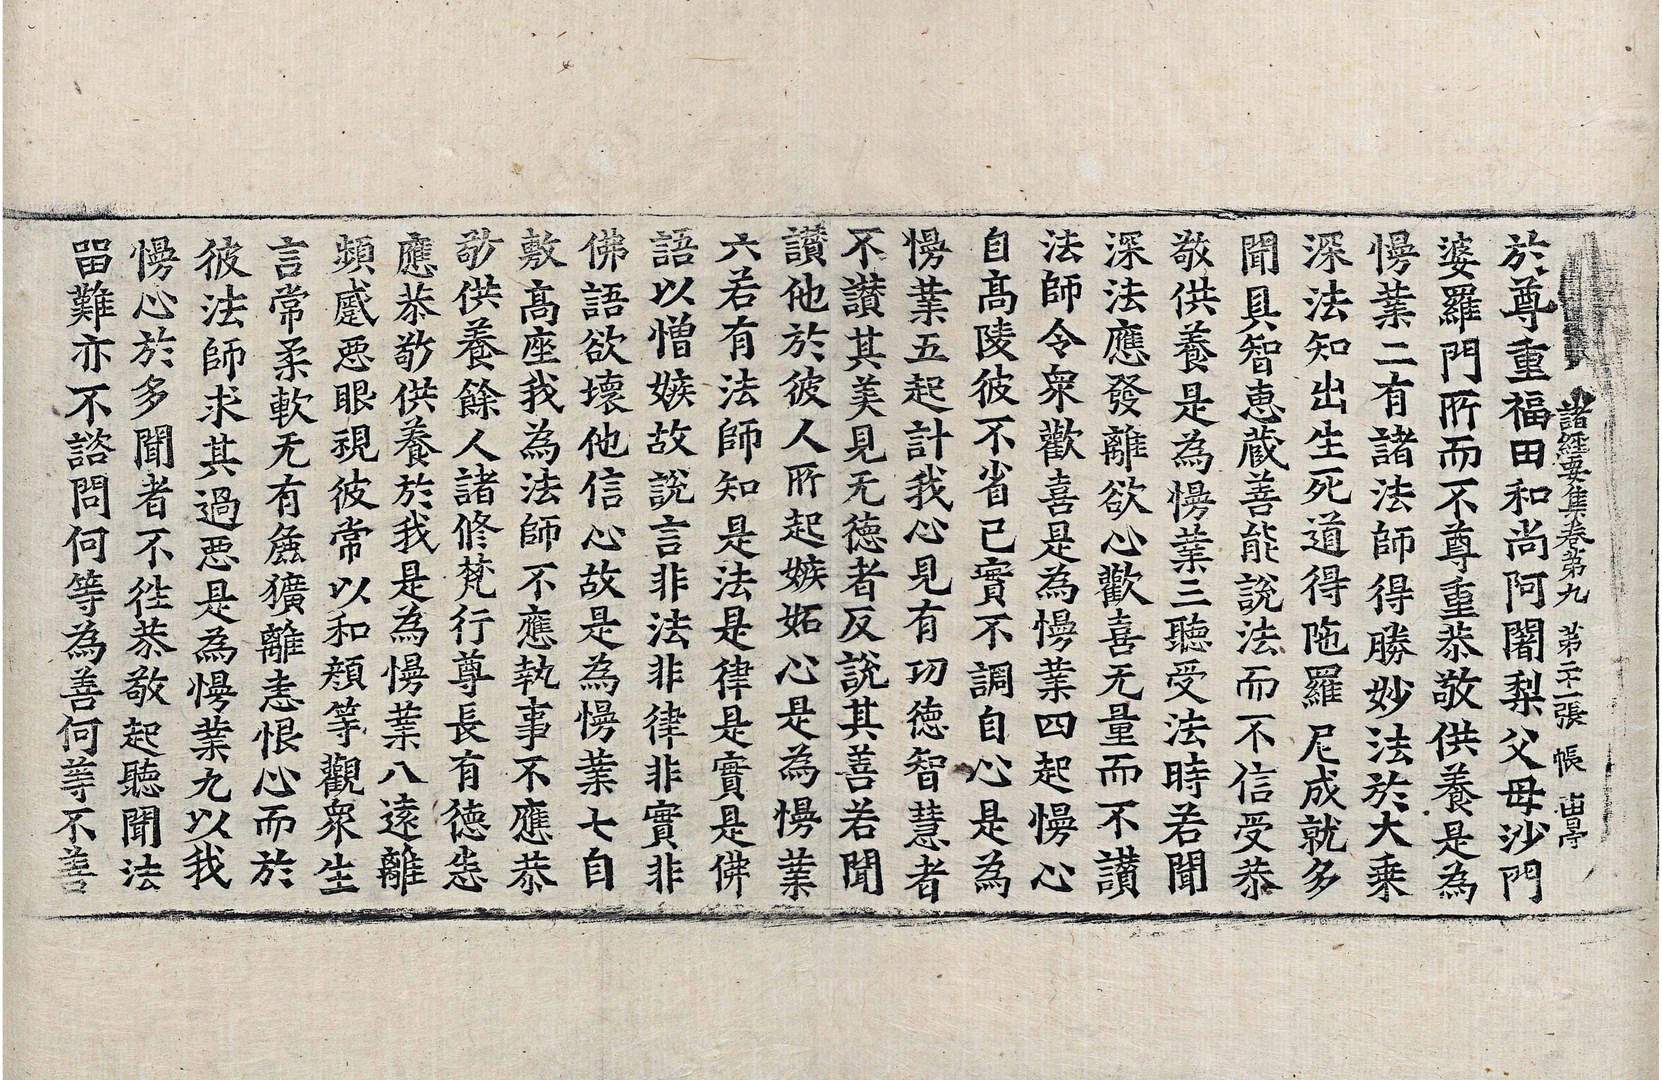 諸經要集卷第九 第二十一張 帳
於尊重福田和尚阿闍梨父母沙門
婆羅門所而不尊重恭敬供養是為
慢業二有諸法師得勝妙法於大乘
深法知出生死道得陁羅尼成就多
聞具智恵蔵善能說法而不信受恭
敬供養是為慢業三聽受法時若聞
深法應發離欲心歡喜无量而不讃
法師令衆歡喜是為慢業四起慢心
自髙陵彼不省已實不調自心是為
慢業五起計我心見有功德智慧者
不讃其美見无德者反說其善若聞
讃他於彼人所起嫉妬心是為慢業
六若有法師知是法是律是實是佛
語以憎嫉故說言非法非律非實非
佛語欲壞他信心故是為慢業七自
敷髙座我為法師不應執事不應恭
敬供養餘人諸修梵行尊長有德悉
應恭敬供養於我是為慢業八遠離
頻蹙惡眼視彼常以和顔等觀衆生
言常柔軟无有麁獷離恚恨心而於
彼法師求其過惡是為慢業九以我
慢心於多聞者不往恭敬起聽聞法
留難亦不諮問何等為善何等不善